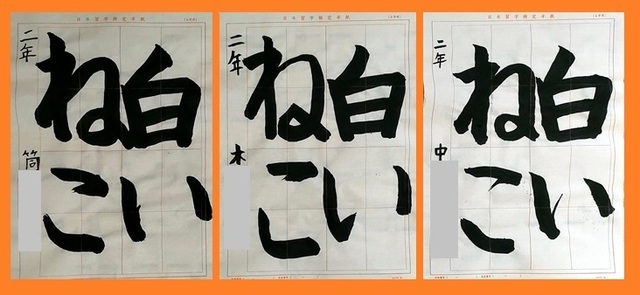 白い
ねこ
二年 筒
白い
ねこ
二年 木
白い
ねこ
二年 中